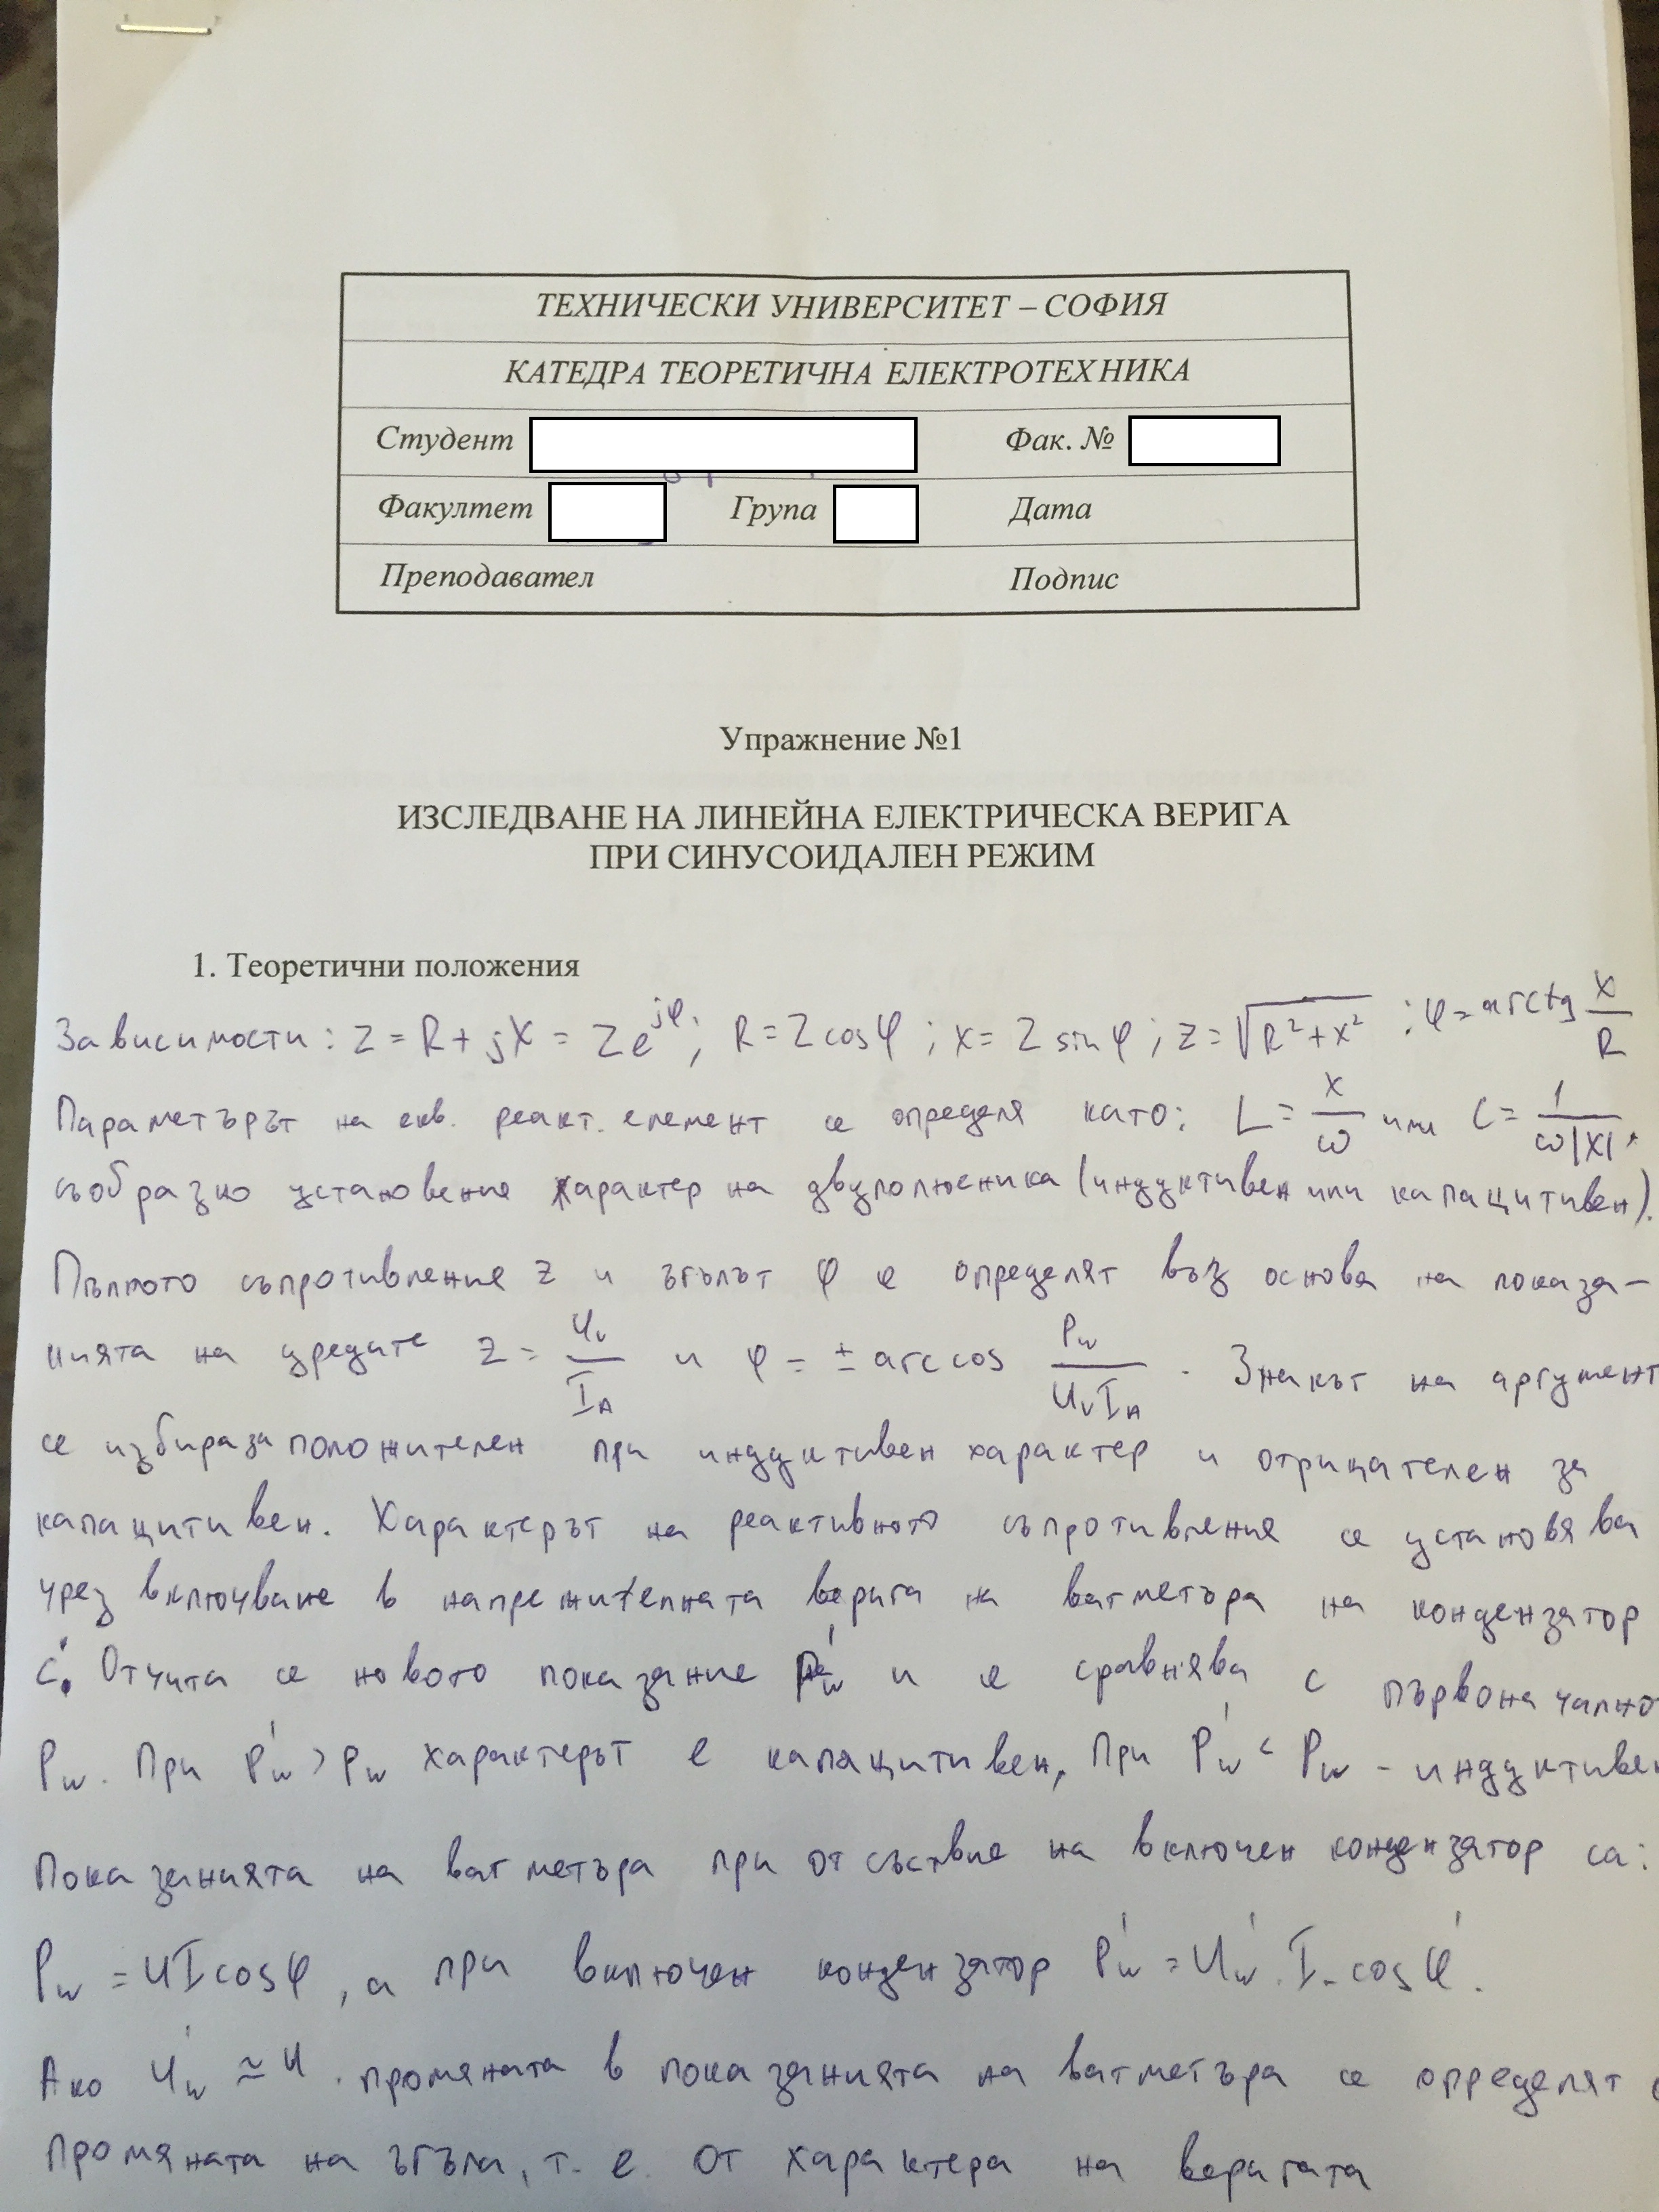 ТЕХНИЧЕСКИ УНИВЕРСИТЕТ – СОФИЯ
КАТЕДРА ТЕОРЕТИЧНА ЕЛЕКТРОТЕХНИКА
Студент Фак. №
Факултет Група Дата
Преподавател Подпис
Упражнение №1
ИЗСЛЕДВАНЕ НА ЛИНЕЙНА ЕЛЕКТРИЧЕСКА ВЕРИГА
ПРИ СИНУСОИДАЛЕН РЕЖИМ
1. Теоретични положения
Зависимости: Z = R + jX = Ze^{jφ}; R = Z cos φ; X = Z sin φ; Z = √(R² + X²); φ = arctg X/R
Параметърът на екв. реакт. елемент се определя като: L = X/ω или C = 1/ω|X|,
съобразно установения характер на двуполюсника (индуктивен или капацитивен).
Пълното съпротивления Z и ъгълът φ се определят въз основа на показа-
нията на уредите Z = U_V/I_A и φ = ± arccos P_W/U_V I_A. Знакът на аргумент
се избира за положителен при индуктивен характер и отрицателен за
капацитивен. Характерът на реактивното съпротивления се установява
чрез включване в напрежителната верига на ватметъра на кондензатор
C'. Отчита се новото показание P'_W и се сравнява с първоначално
P_W. При P'_W > P_W характерът е капацитивен, при P'_W < P_W - индуктивен
Показанията на ватметъра при отсъствие на включен кондензатор са:
P_W = UI cos φ, а при включен кондензатор P'_W = U'_W . I . cos φ'.
Ако U'_W ≃ U . промяната в показанията на ватметъра се определят
промяната на ъгъла, т. е. от характера на веригата